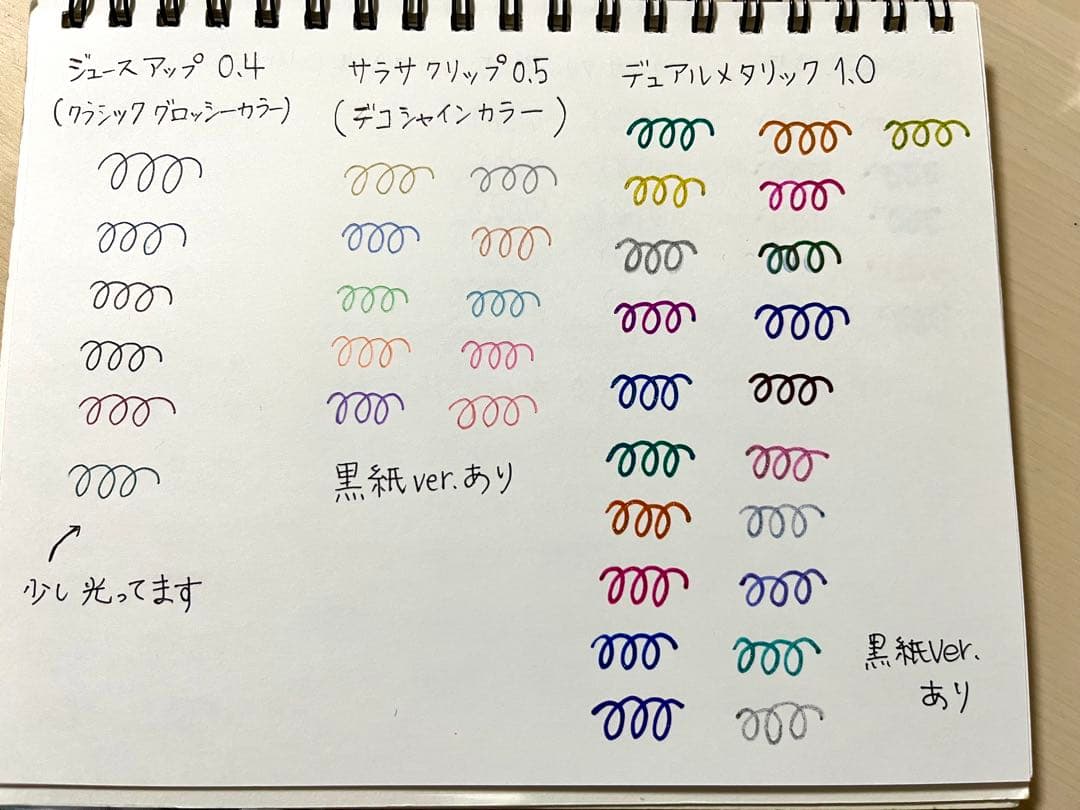 ジュースアップ 0.4
(クラシックグロッシーカラー)
少し光ってます
サラサクリップ0.5
(デコシャインカラー)
黒紙ver.あり
デュアルメタリック1.0
黒紙ver.
あり